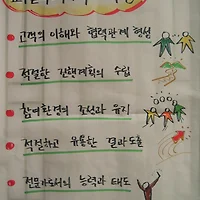 고객의 이해와 협력관계 형성
적절한 진행계획의 수립
참여환경의 조성과 유지
적절하고 유용한 결과 도출
전문가로서의 능력과 태도